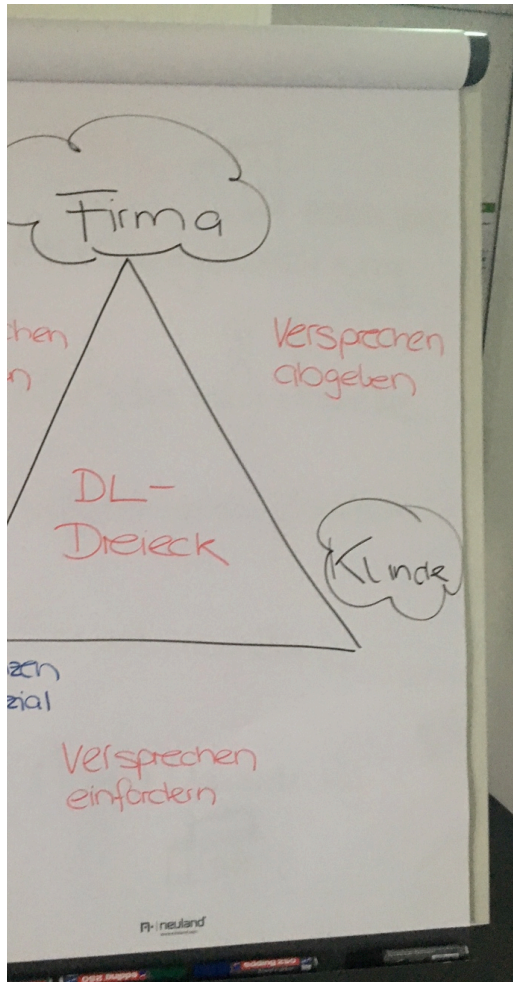 Firma
chen
n
Versprechen
abgeben
DL-
Dreieck
Kunde
zen
zial
Versprechen
einfordern
neuland